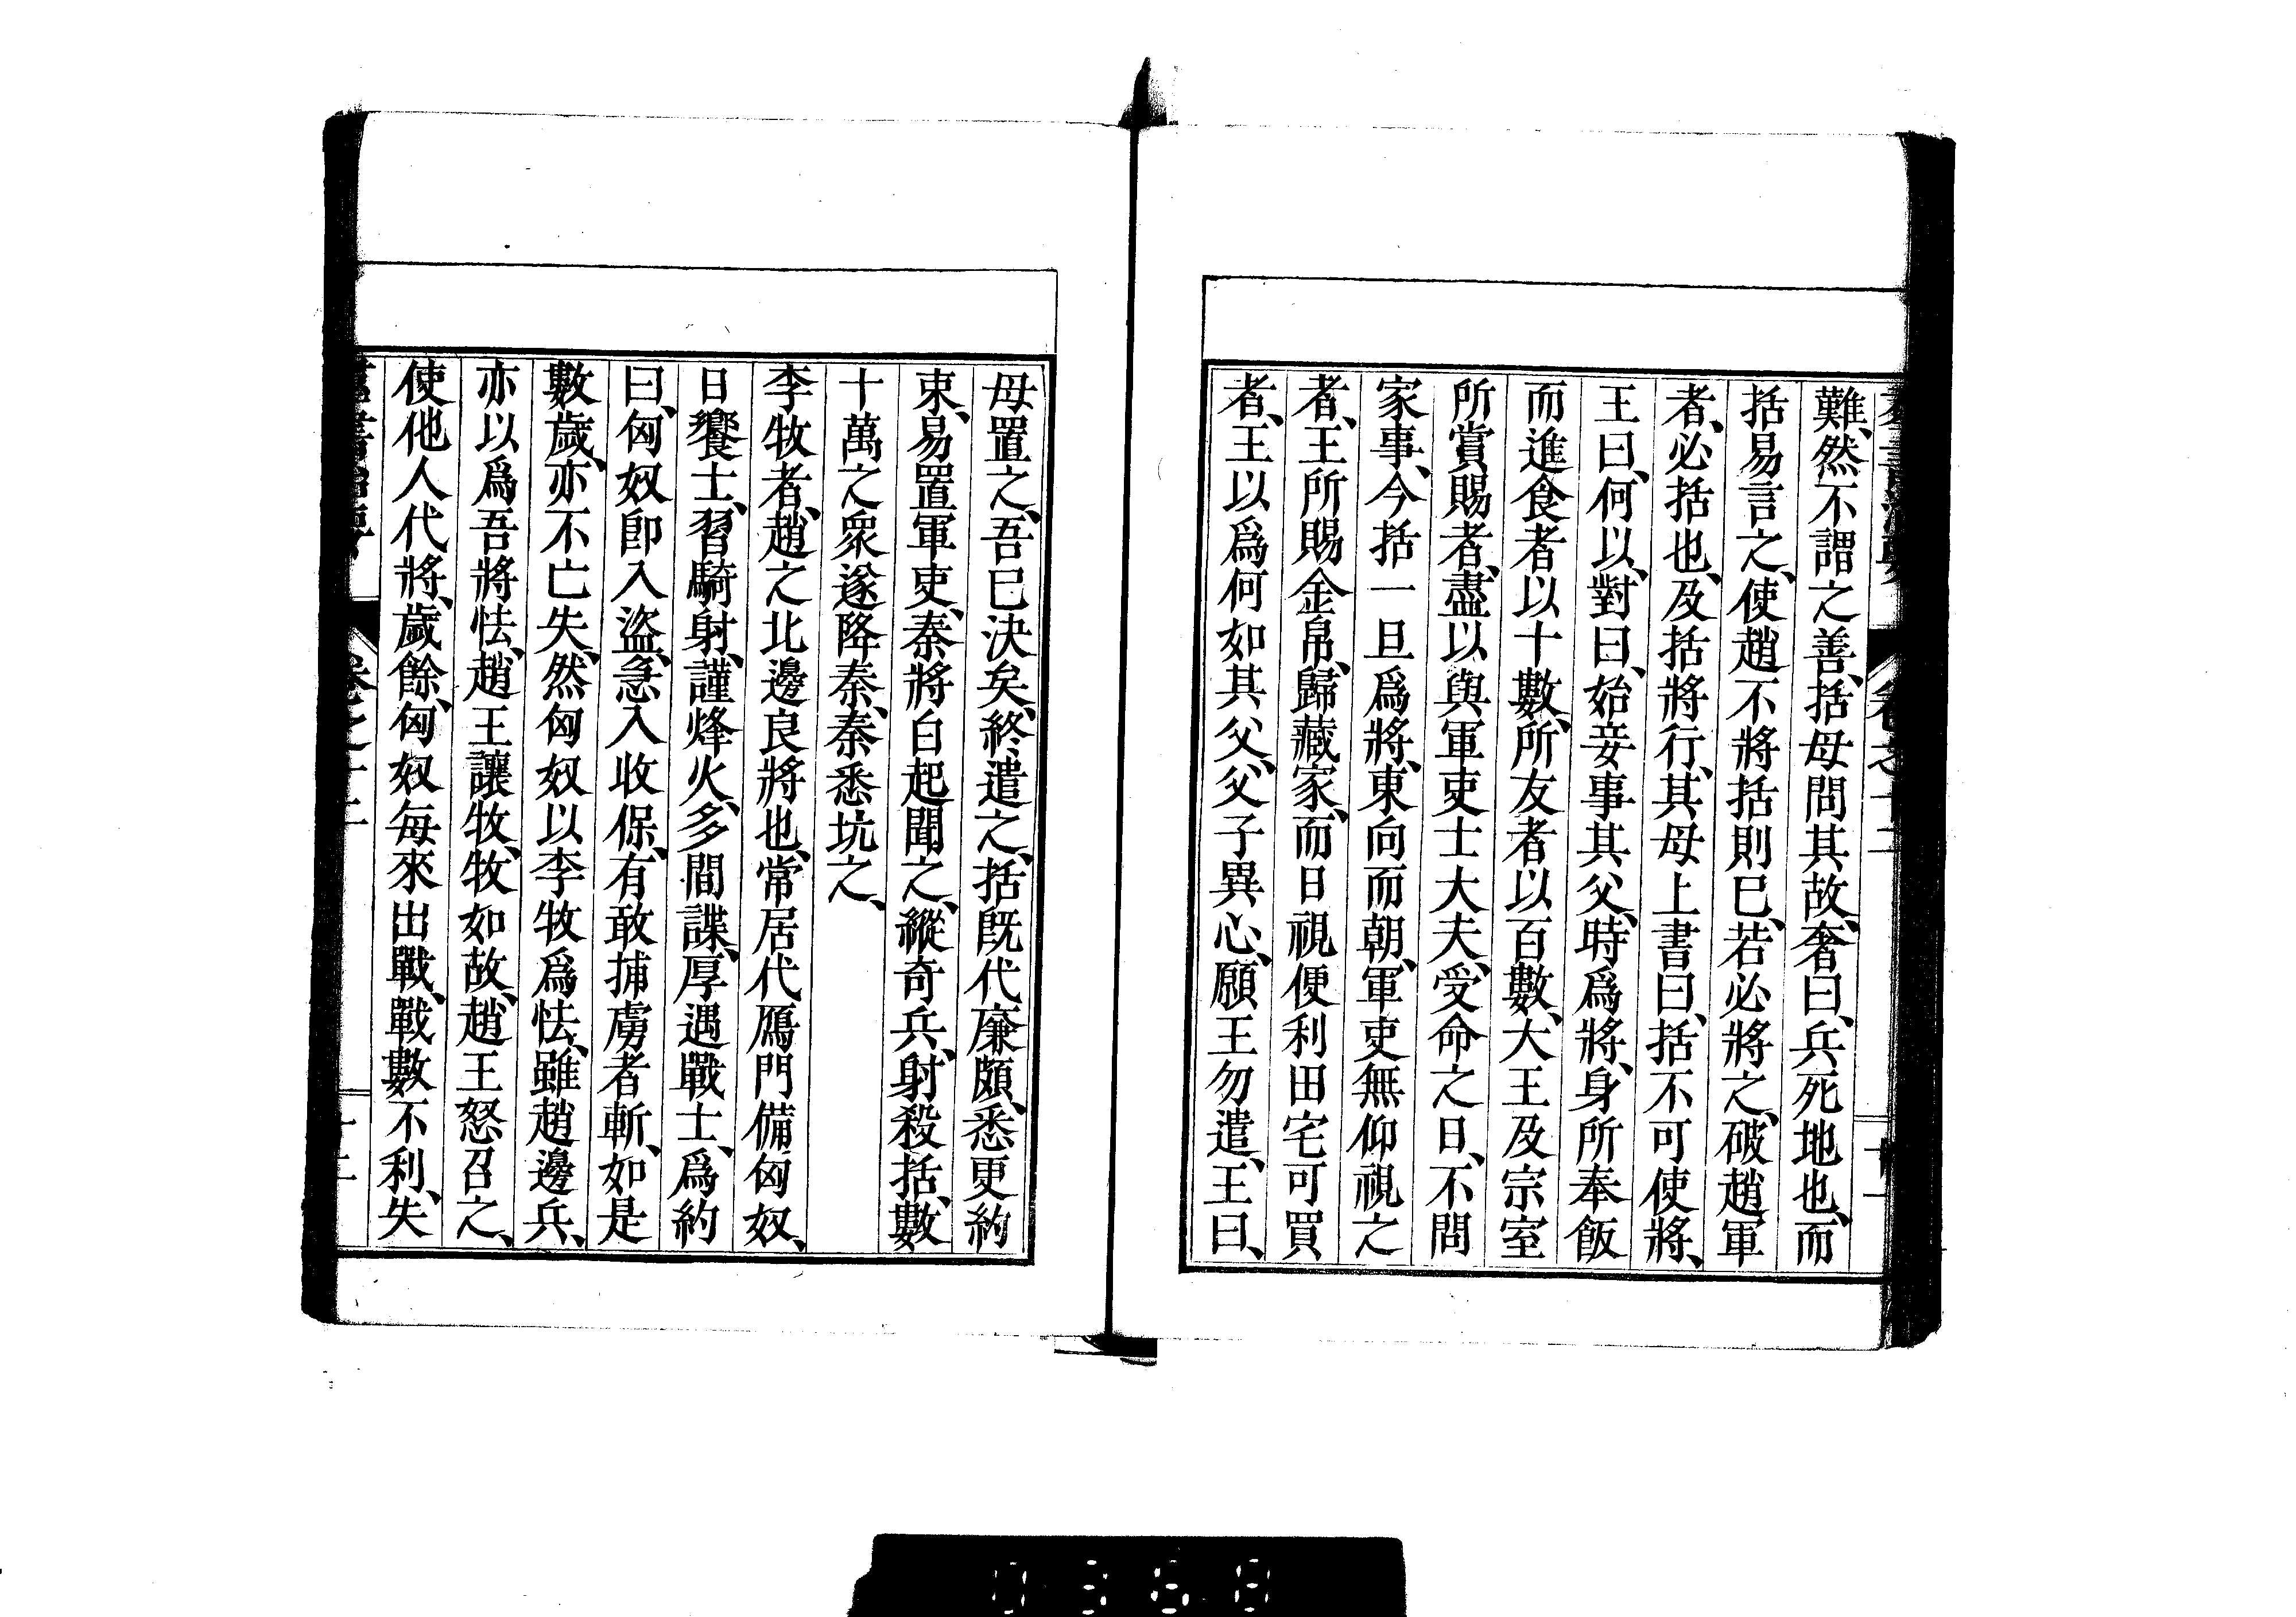 難、然不謂之善、括母問其故、奢曰、兵死地也、而
括易言之、使趙不將括則已、若必將之、破趙軍
者、必括也、及括將行、其母上書曰、括不可使將、
王曰、何以、對曰、始妾事其父、時爲將、身所奉飯
而進食者以十數、所友者以百數、大王及宗室
所賞賜者、盡以與軍吏士大夫、受命之日、不問
家事、今括一旦爲將、東向而朝、軍吏無仰視之
者、王所賜金帛、歸藏家、而日視便利田宅可買
者、王以爲何如其父、父子異心、願王勿遣、王曰、
母置之、吾已決矣、終遣之、括既代廉頗、悉更約
束、易置軍吏、秦將白起聞之、縱奇兵、射殺括、數
十萬之衆遂降秦、秦悉坑之、
李牧者、趙之北邊良將也、常居代鴈門備匈奴、
日饗士、習騎射、謹烽火、多間諜、厚遇戰士、爲約
曰、匈奴卽入盜、急入收保、有敢捕虜者斬、如是
數歲、亦不亡失、然匈奴以李牧爲怯、雖趙邊兵、
亦以爲吾將怯、趙王讓牧、牧如故、趙王怒召之、
使他人代將、歲餘、匈奴每來出戰、戰數不利、失
卷之十二
十二
0368